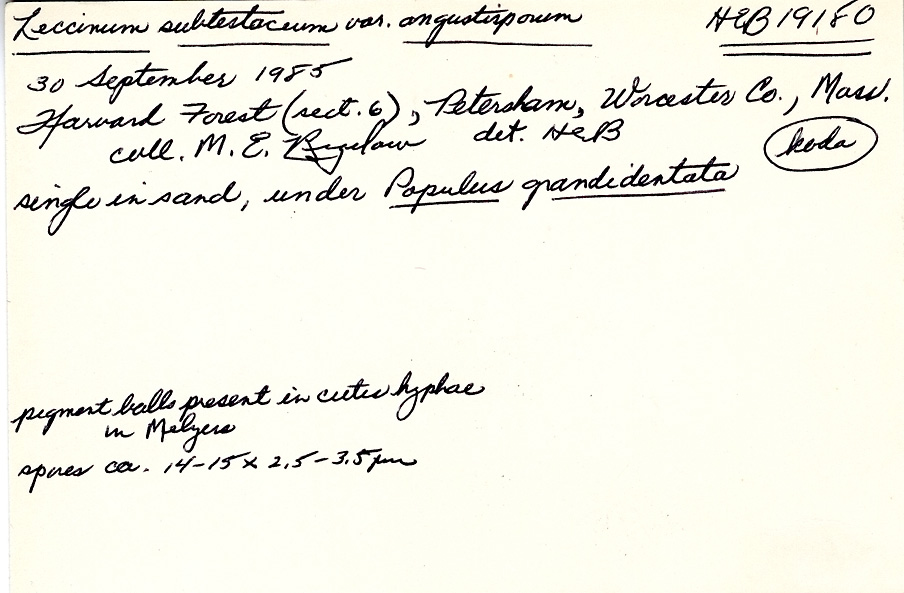 Leccinum subtestaceum var. angustisporum HEB 19180
30 September 1985
Harvard Forest (sect. 6), Petersham, Worcester Co., Mass.
coll. M. E. Bigelow det. HEB koda
single in sand, under Populus grandidentata
pigment balls present in cutis hyphae
in Melzers
spores ca. 14-15 x 2.5-3.5 µm